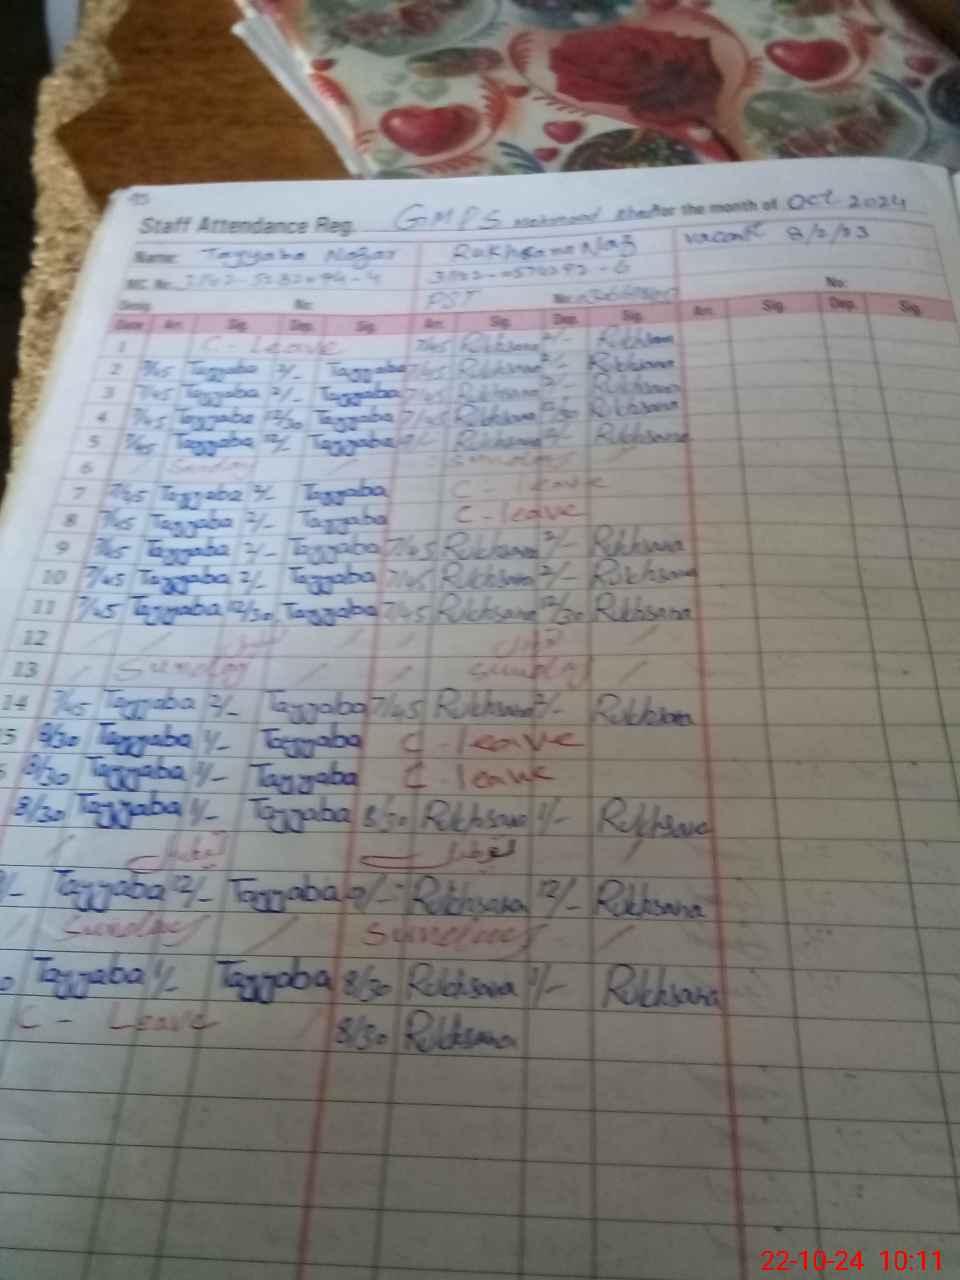 Staff Attendance Reg. GMPS for the month of Oct 2024
Name: Tayyaba Rukhsana Naz vacant 8/2/23
NIC. No.
Desig. No: PST No: No:
Date Arr. Sig. Dep. Sig. Arr. Sig. Dep. Sig. Arr. Sig. Dep. Sig.
1 C - Leave 7/45 Rukhsana 2/- Rukhsana
2 7/45 Tayyaba 2/- Tayyaba 7/45 Rukhsana 2/- Rukhsana
3 7/45 Tayyaba 2/- Tayyaba 7/45 Rukhsana 2/- Rukhsana
4 7/45 Tayyaba 12/30 Tayyaba 7/45 Rukhsana 12/30 Rukhsana
5 7/45 Tayyaba 12/- Tayyaba Rukhsana Rukhsana
6 Sunday Sunday
7 7/45 Tayyaba 2/- Tayyaba C - leave
8 7/45 Tayyaba 2/- Tayyaba C - leave
9 7/45 Tayyaba 2/- Tayyaba 7/45 Rukhsana 2/- Rukhsana
10 7/45 Tayyaba 2/- Tayyaba 7/45 Rukhsana 2/- Rukhsana
11 7/45 Tayyaba 12/30 Tayyaba 7/45 Rukhsana 12/30 Rukhsana
12
13 Sunday Sunday
14 7/45 Tayyaba 2/- Tayyaba 7/45 Rukhsana 2/- Rukhsana
5 8/30 Tayyaba 1/- Tayyaba C - leave
8/30 Tayyaba 1/- Tayyaba C - leave
8/30 Tayyaba 1/- Tayyaba 8/30 Rukhsana 1/- Rukhsana
تعطیل تعطیل
/- Tayyaba 12/- Tayyaba 9/- Rukhsana 12/- Rukhsana
Sunday Sunday
0 Tayyaba 1/- Tayyaba 8/30 Rukhsana 1/- Rukhsana
C - Leave 8/30 Rukhsana
22-10-24 10:11